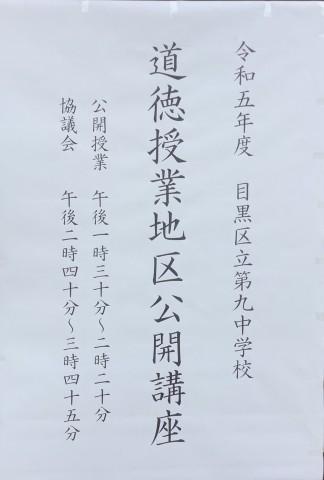 令和五年度　目黒区立第九中学校
道徳授業地区公開講座
公開授業　午後一時三十分～二時二十分
協議会　午後二時四十分～三時四十五分